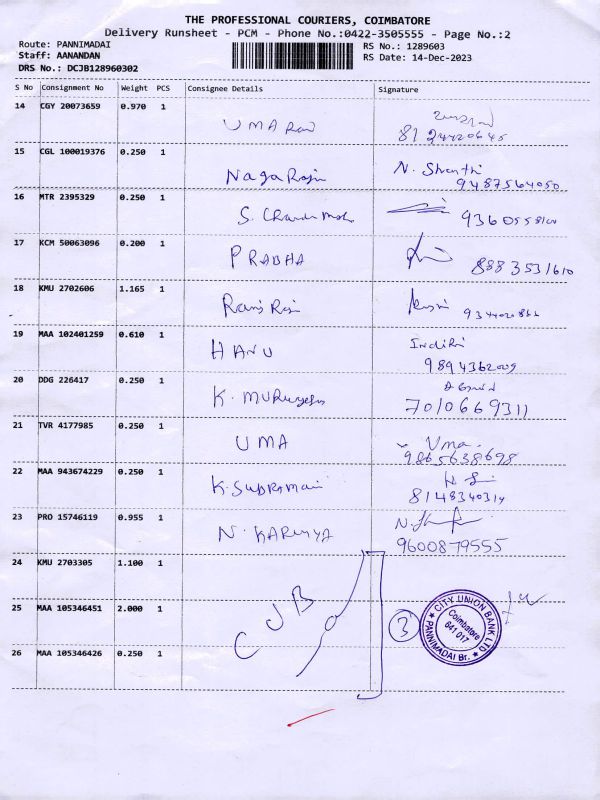 THE PROFESSIONAL COURIERS, COIMBATORE
Delivery Runsheet - PCM - Phone No.:0422-3505555 - Page No.:2
Route: PANNIMADAI
RS No.: 1289603
Staff: AANANDAN
RS Date: 14-Dec-2023
DRS No.: DCJB128960302
S No Consignment No Weight PCS Consignee Details Signature
14 CGY 20073659 0.970 1
UMA
8124420645
15 CGL 100019376 0.250 1
Nagaraju N. Shanthi
9487564050
16 MTR 2395329 0.250 1
S.
17 KCM 50063096 0.200 1
PRABHA
8883531610
18 KMU 2702606 1.165 1
19 MAA 102401259 0.610 1
HANU
9894362009
20 DDG 226417 0.250 1
K.
7010669311
21 TVR 4177985 0.250 1
UMA Uma.
9865638698
22 MAA 943674229 0.250 1
K.
8148340314
23 PRO 15746119 0.955 1
N. KARUNYA
9600879555
24 KMU 2703305 1.100 1
25 MAA 105346451 2.000 1
CJB
3
CITY UNION BANK LTD
Coimbatore
641 017
PANNIMADAI Br.
26 MAA 105346426 0.250 1